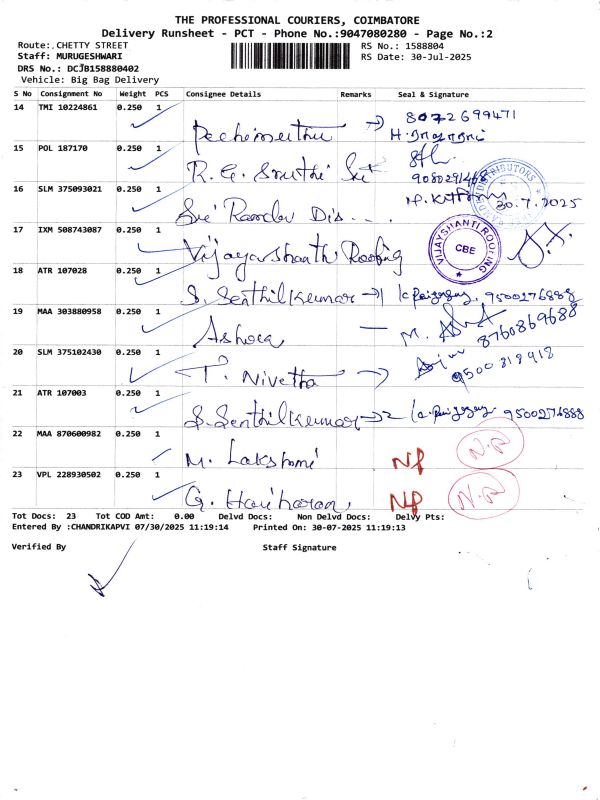 THE PROFESSIONAL COURIERS, COIMBATORE
Delivery Runsheet - PCT - Phone No.:9047080280 - Page No.:2
Route: CHETTY STREET
RS No.: 1588804
Staff: MURUGESHWARI
RS Date: 30-Jul-2025
DRS No.: DCJB158880402
Vehicle: Big Bag Delivery
S No Consignment No Weight PCS Consignee Details Remarks Seal & Signature
14 TMI 10224861 0.250 1
8072699471
Pechimuthu
15 POL 187170 0.250 1
R. G. Sruthi
9080291468
16 SLM 375093021 0.250 1
30.7.2025
Sri Ramdev Dis...
17 IXM 508743087 0.250 1
Vijayashanthi Roofing
VIJAYSHANTI ROOFING
CBE
18 ATR 107028 0.250 1
S. Senthilkumar 1 9500276888
19 MAA 303880958 0.250 1
Ashoca
8760869688
20 SLM 375102430 0.250 1
T. Nivetha
9500819918
21 ATR 107003 0.250 1
S. Senthilkumar 2 9500274888
22 MAA 870600982 0.250 1
M. Lakshmi NP N.P
23 VPL 228930502 0.250 1
G. Hariharan NP N.P
Tot Docs: 23 Tot COD Amt: 0.00 Delvd Docs: Non Delvd Docs: Delvy Pts:
Entered By :CHANDRIKAPVI 07/30/2025 11:19:14 Printed On: 30-07-2025 11:19:13
Verified By Staff Signature